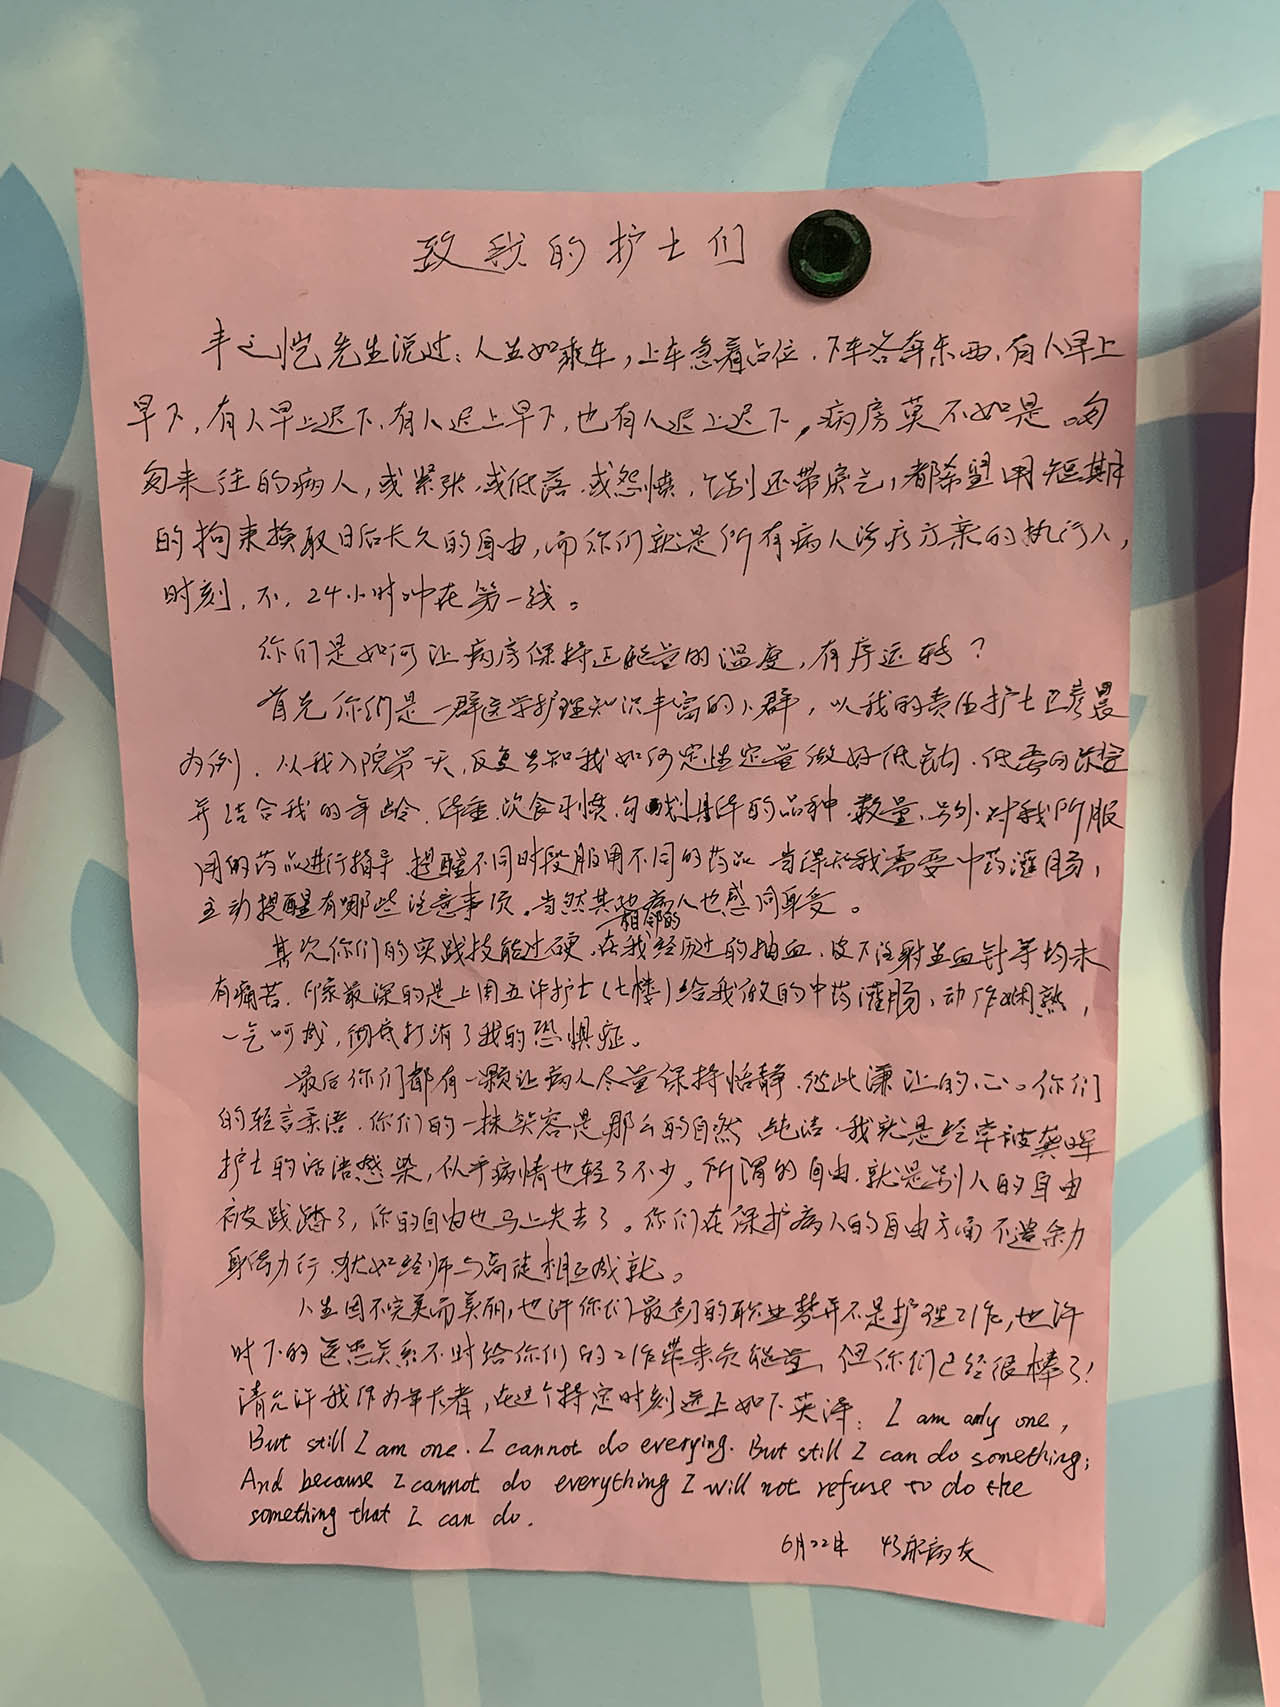 致我的护士们
丰之恺先生说过：人生如乘车，上车急着占位，下车各奔东西，有人早上
早下，有人早上迟下，有人迟上早下，也有人迟上迟下，病房莫不如是。匆
匆来往的病人，或紧张，或低落，或怨愤，个别还带戾气，都希望用短期
的拘束换取日后长久的自由，而你们就是所有病人治疗方案的执行人，
时刻，不，24小时冲在第一线。
你们是如何让病房保持正能量的温度，有序运转？
首先你们是一群医学护理知识丰富的人群，以我的责任护士巴彦晨
为例，从我入院第一天，反复告知我如何定性定量做好低钠、低蛋白饮食
并结合我的年龄、体重、饮食习惯，勾划具体的品种、数量，另外对我所服
用的药品进行指导，提醒不同时段服用不同的药品，当得知我需要中药灌肠，
主动提醒有哪些注意事项。当然其他病人也感同身受。
相邻的
其次你们的实践技能过硬，在我经历过的抽血，皮下注射至血针等均未
有痛苦，印象最深的是上周五许护士（七楼）给我做的中药灌肠，动作娴熟，
一气呵成，彻底打消了我的恐惧症。
最后你们都有一颗让病人尽量保持恬静，彼此谦让的心。你们
的轻言柔语，你们的一抹笑容是那么的自然、纯洁，我就是经常被龚晖
护士的话语感染，似乎病情也轻了不少。所谓的自由，就是别人的自由
被践踏了，你的自由也马上失去了。你们在保护病人的自由方面不遗余力
身体力行，犹如经师与高徒相互成就。
人生因不完美而美丽，也许你们最初的职业梦并不是护理工作，也许
时下的医患关系不时给你们的工作带来负能量，但你们已经很棒了！
请允许我作为年长者，在这个特定时刻送上如下英译：I am only one,
But still I am one. I cannot do everying. But still I can do something;
And because I cannot do everything I will not refuse to do the
something that I can do.
6月22日 43床病友